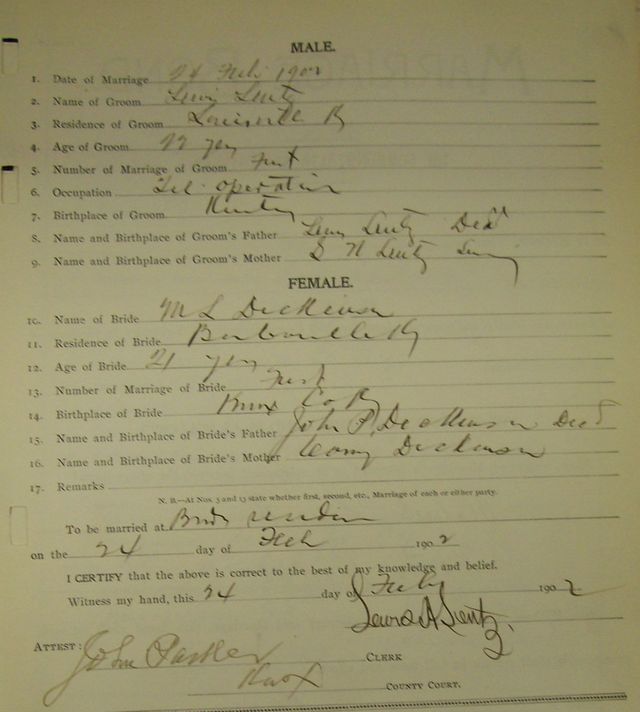 MALE.
1. Date of Marriage 24 Feb. 1902
2. Name of Groom Lewis Lentz
3. Residence of Groom Louisville Ky
4. Age of Groom 22 yrs
5. Number of Marriage of Groom First
6. Occupation Tel. operator
7. Birthplace of Groom Kentucky
8. Name and Birthplace of Groom's Father Lewis Lentz Dead
9. Name and Birthplace of Groom's Mother S H Lentz
FEMALE.
10. Name of Bride M L Dickinson
11. Residence of Bride Barbourville Ky
12. Age of Bride 21 yrs
13. Number of Marriage of Bride First
14. Birthplace of Bride Knox Co Ky
15. Name and Birthplace of Bride's Father John P. Dickinson Dead
16. Name and Birthplace of Bride's Mother Dickinson
17. Remarks
N. B.—At Nos. 5 and 13 state whether first, second, etc., Marriage of each or either party.
To be married at Brides residence
on the 24 day of Feb 1902
I CERTIFY that the above is correct to the best of my knowledge and belief.
Witness my hand, this 24 day of Feby 1902
Lewis A Lentz.
ATTEST: John Parker CLERK
Knox COUNTY COURT.